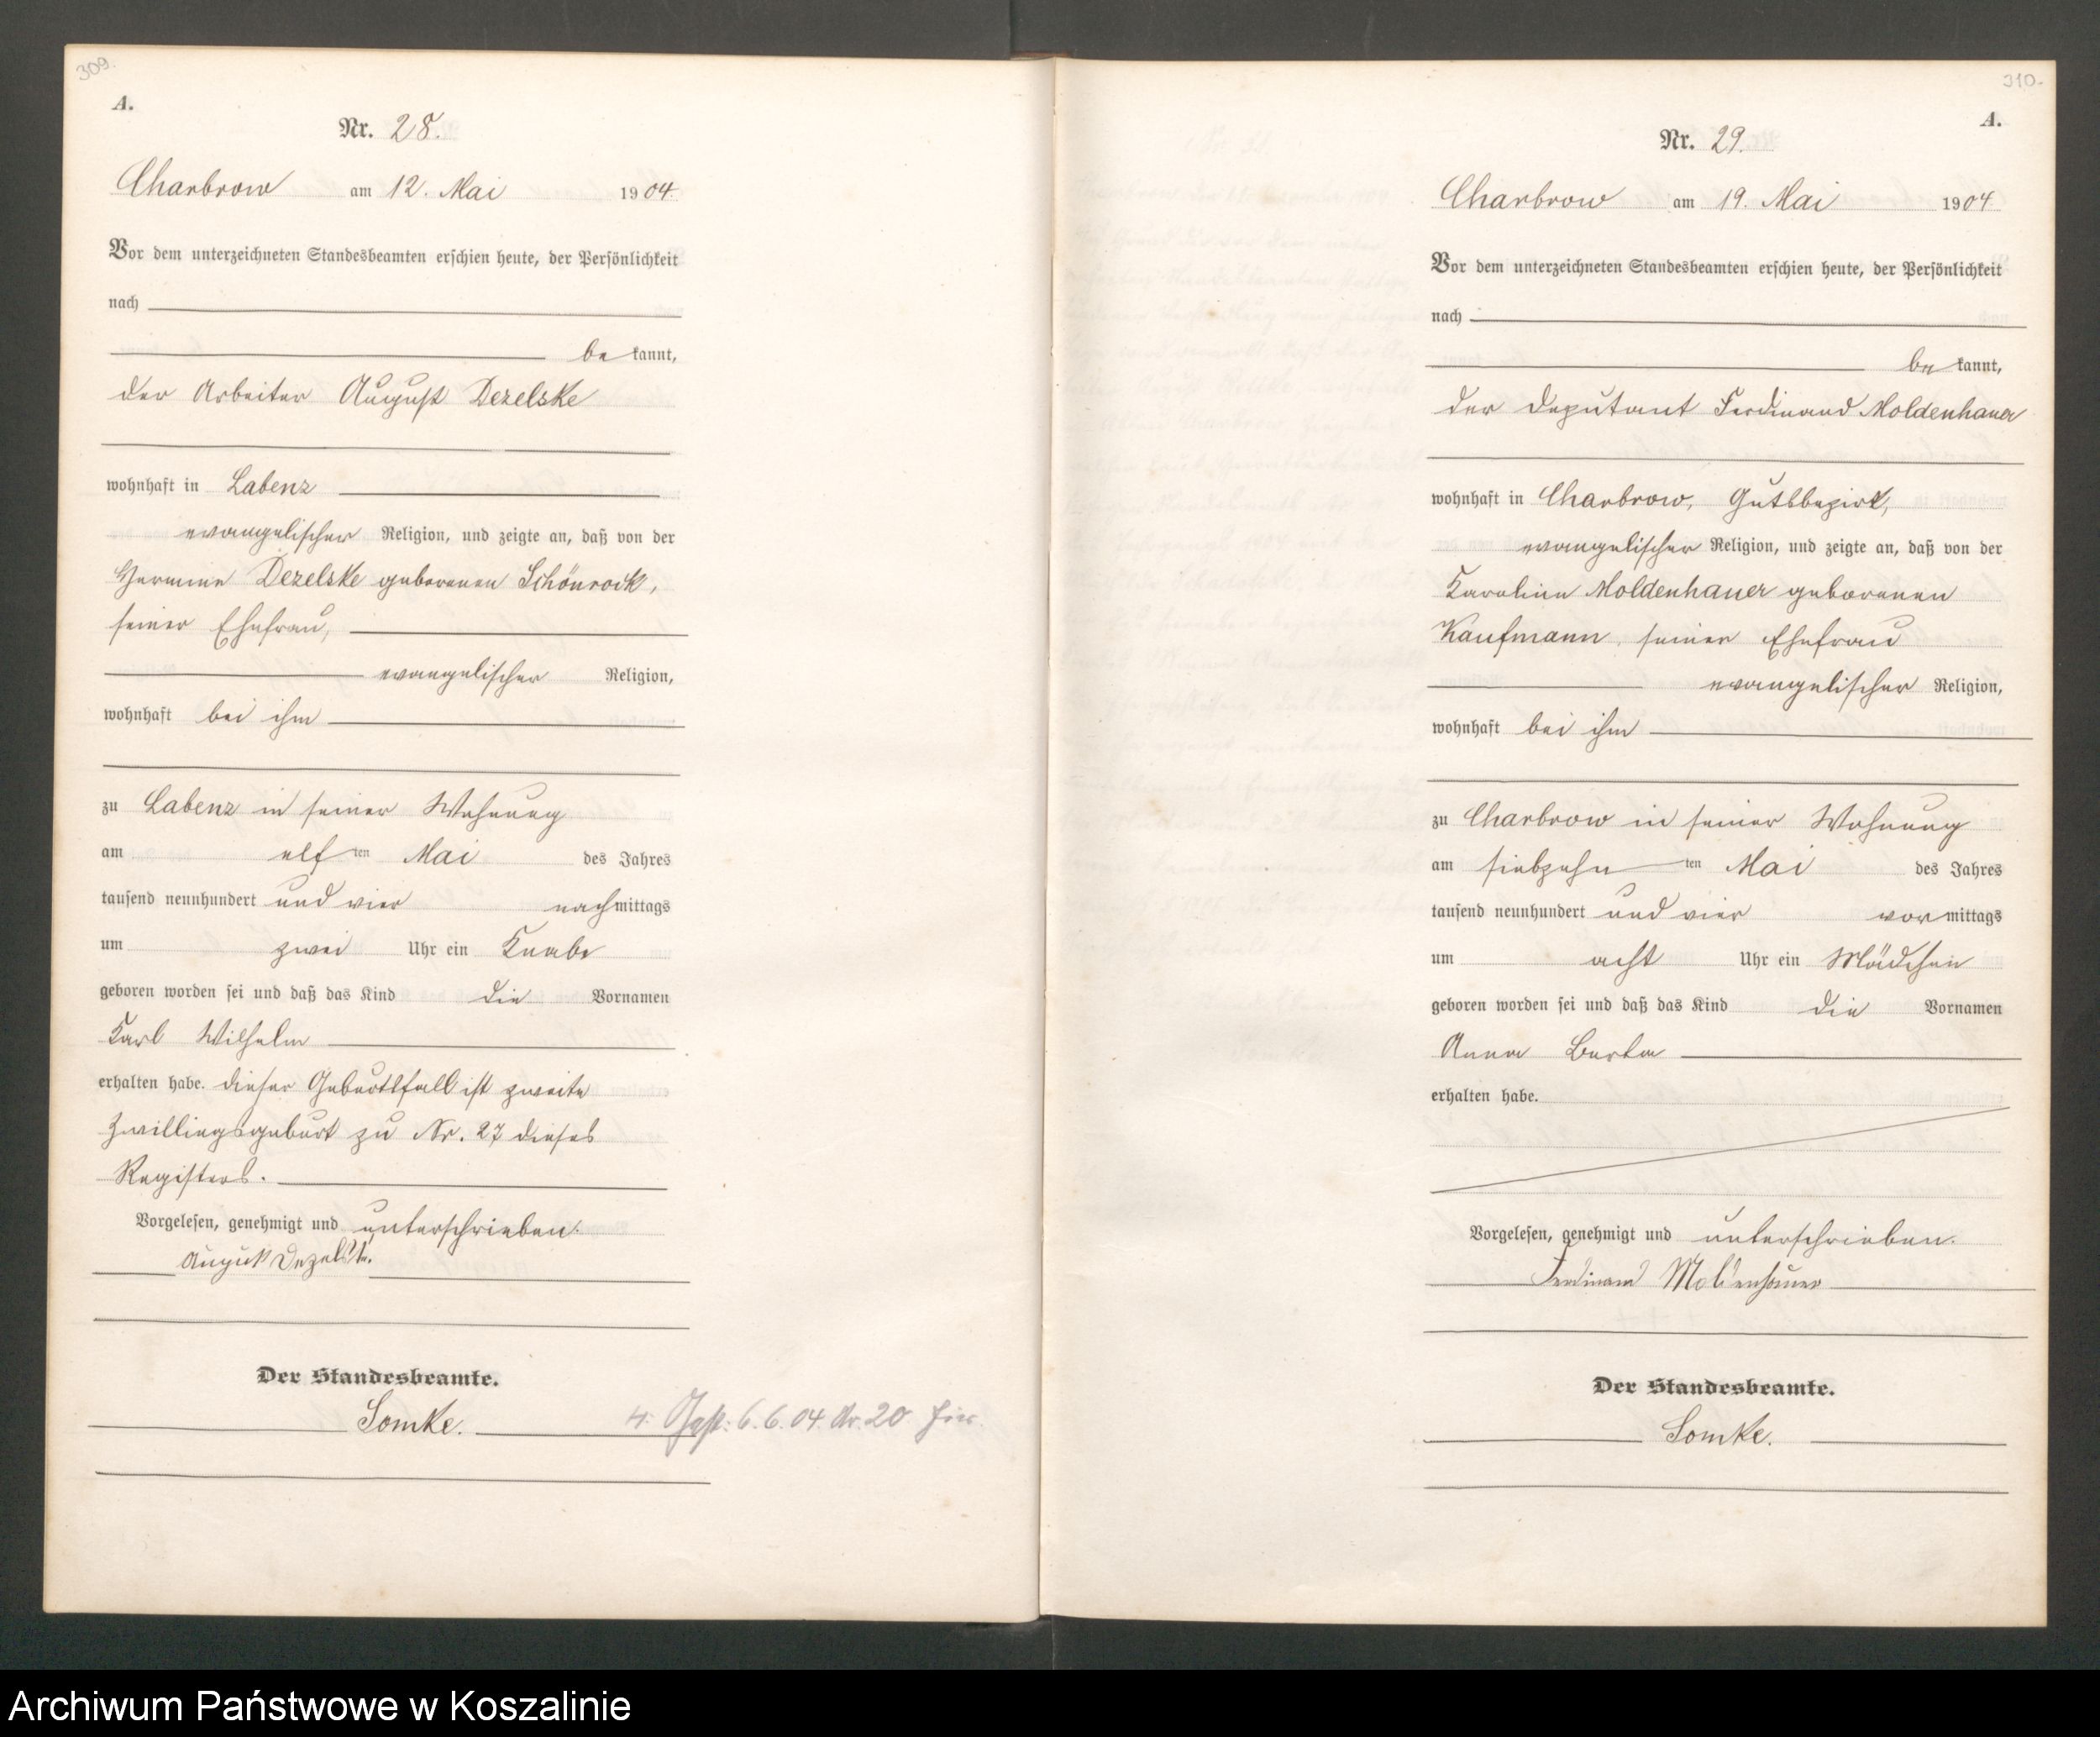 309.
A.
Nr. 28.
Charbrow am 12. Mai 1904
Vor dem unterzeichneten Standesbeamten erschien heute, der Persönlichkeit
nach
be kannt,
der Arbeiter August Dezelske
wohnhaft in Labenz
evangelischer Religion, und zeigte an, daß von der
Hermine Dezelske geborenen Schönrock,
seiner Ehefrau,
evangelischer Religion,
wohnhaft bei ihm
zu Labenz in seiner Wohnung
am elf ten Mai des Jahres
tausend neunhundert und vier nachmittags
um zwei Uhr ein Knabe
geboren worden sei und daß das Kind die Vornamen
Karl Wilhelm
erhalten habe. Dieser Geburtsfall ist zweite
Zwillingsgeburt zu Nr. 27 dieses
Registers.
Vorgelesen, genehmigt und unterschrieben.
August Dezelske.
Der Standesbeamte.
Somke.
6. 6. 04. Nr. 20
310.
A.
Nr. 29.
Charbrow am 19. Mai 1904
Vor dem unterzeichneten Standesbeamten erschien heute, der Persönlichkeit
nach
be kannt,
der Deputant Ferdinand Moldenhauer
wohnhaft in Charbrow, Gutsbezirk,
evangelischer Religion, und zeigte an, daß von der
Karoline Moldenhauer geborenen
Kaufmann, seiner Ehefrau
evangelischer Religion,
wohnhaft bei ihm
zu Charbrow in seiner Wohnung
am siebzehn ten Mai des Jahres
tausend neunhundert und vier vormittags
um acht Uhr ein Mädchen
geboren worden sei und daß das Kind die Vornamen
Anna Berta
erhalten habe.
Vorgelesen, genehmigt und unterschrieben.
Ferdinand Moldenhauer
Der Standesbeamte.
Somke.
Archiwum Państwowe w Koszalinie